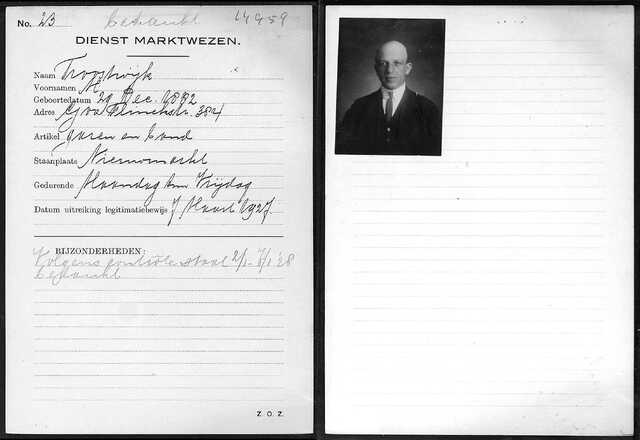 No. 23 bedankt 14959
DIENST MARKTWEZEN.
Naam Troostwijk
Voornamen H
Geboortedatum 29 Dec. 1882
Adres Gov. Flinckstr. 384
Artikel garen en band
Staanplaats Nieuwmarkt
Gedurende Maandag t/m Vrijdag
Datum uitreiking legitimatiebewijs 7 Maart 1927.
BIJZONDERHEDEN:
Volgens controle staat 2/1 - 7/1 '28
bedankt
Z. O. Z.